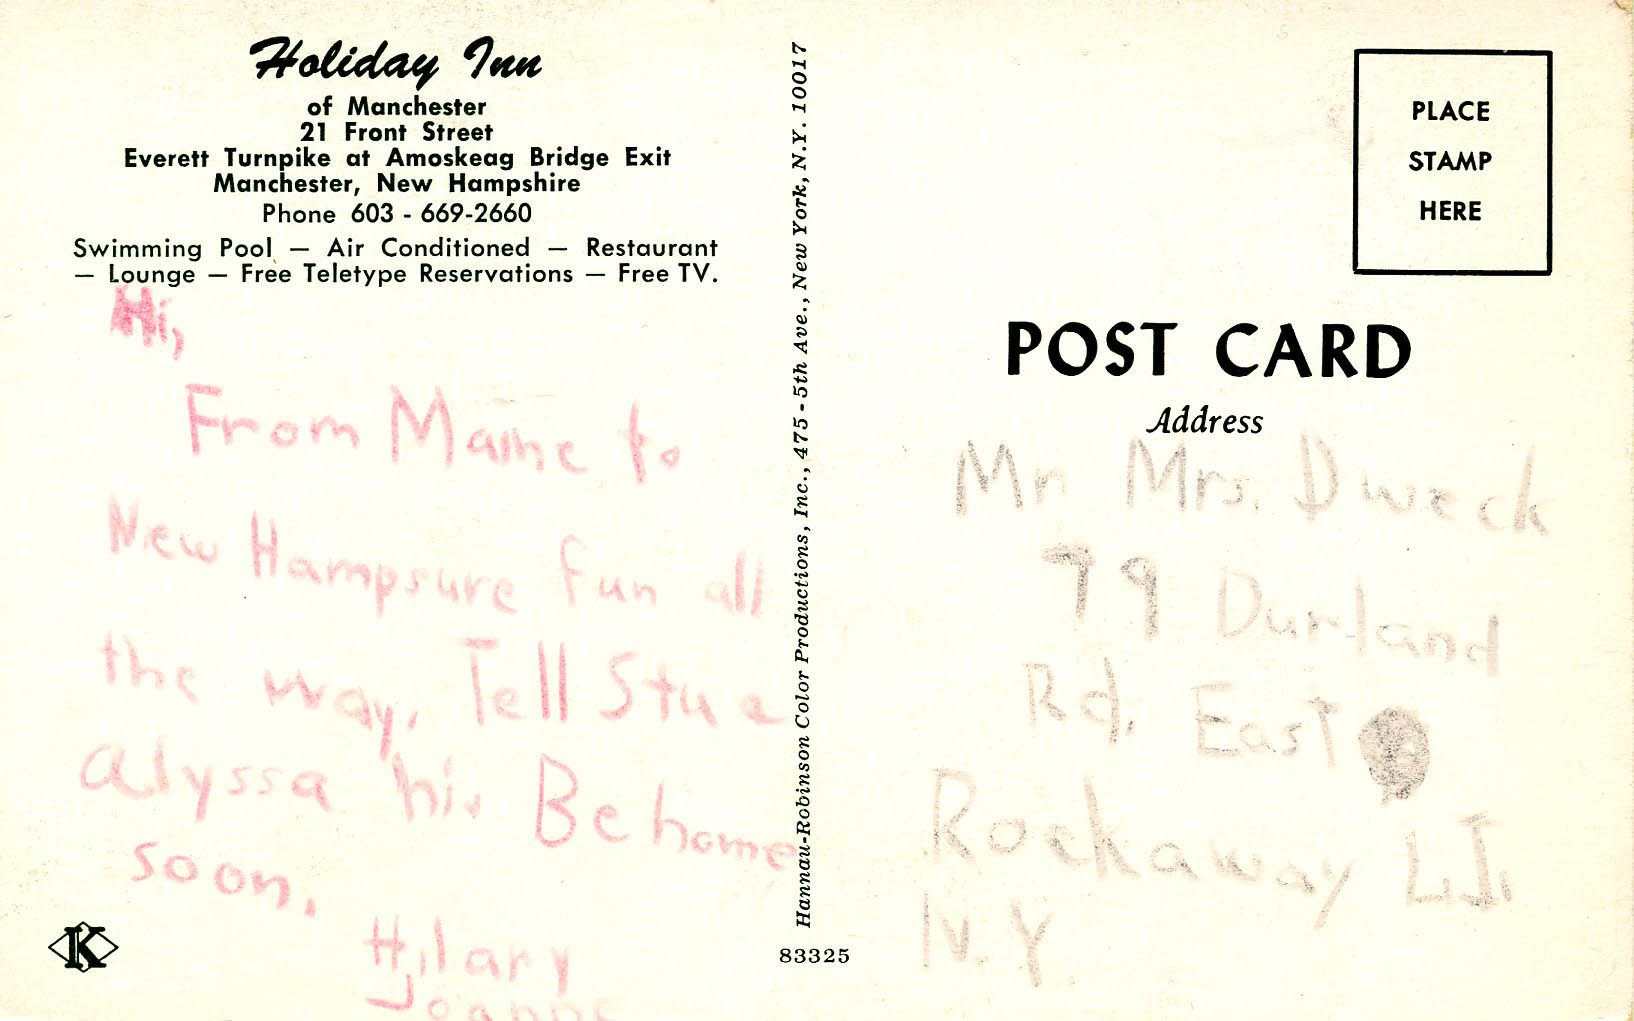 Holiday Inn
of Manchester
21 Front Street
Everett Turnpike at Amoskeag Bridge Exit
Manchester, New Hampshire
Phone 603 - 669-2660
Swimming Pool — Air Conditioned — Restaurant
— Lounge — Free Teletype Reservations — Free TV.
Hi,
From Maine to
New Hampsure fun all
the way. Tell Stu e
Alyssa hi. Be home
soon.
Hilary
Joanne
K
Hannau-Robinson Color Productions, Inc., 475 - 5th Ave., New York, N.Y. 10017
83325
PLACE
STAMP
HERE
POST CARD
Address
Mr Mrs. Dweck
79 Durland
Rd. East
Rockaway L.I.
N.Y.